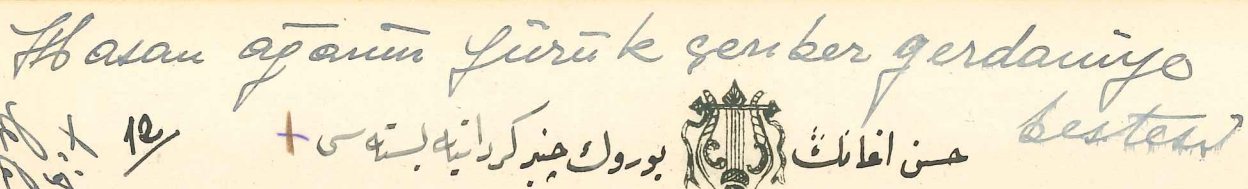 Hasan ağanın Yürük çenber gerdaniye
bestesi
حسن اغانڭ یوروك چنبر كردانیه بسته سی +
12/